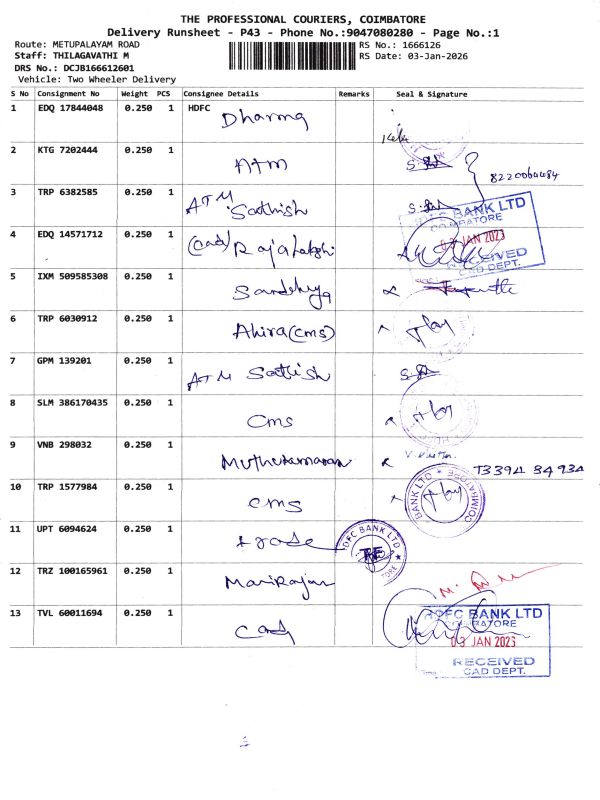 THE PROFESSIONAL COURIERS, COIMBATORE
Delivery Runsheet - P43 - Phone No.:9047080280 - Page No.:1
Route: METUPALAYAM ROAD
Staff: THILAGAVATHI M
DRS No.: DCJB166612601
Vehicle: Two Wheeler Delivery
RS No.: 1666126
RS Date: 03-Jan-2026
S No Consignment No Weight PCS Consignee Details Remarks Seal & Signature
1 EDQ 17844048 0.250 1 HDFC
Dharma
2 KTG 7202444 0.250 1
ATM
8220064484
3 TRP 6382585 0.250 1
ATM Sathish
HDFC BANK LTD
COIMBATORE
03 JAN 2023
RECEIVED
CAD DEPT.
4 EDQ 14571712 0.250 1
(cad) Rajalakshi
5 IXM 509585308 0.250 1
Sandhya
6 TRP 6030912 0.250 1
Ahira(cms)
7 GPM 139201 0.250 1
ATM Sathish
8 SLM 386170435 0.250 1
cms
9 VNB 298032 0.250 1
Muthukumaran
10 TRP 1577984 0.250 1
cms
BANK LTD COIMBATORE
11 UPT 6094624 0.250 1
trade
HDFC BANK LTD
12 TRZ 100165961 0.250 1
Marirajan
13 TVL 60011694 0.250 1
cad
HDFC BANK LTD
COIMBATORE
03 JAN 2023
RECEIVED
CAD DEPT.